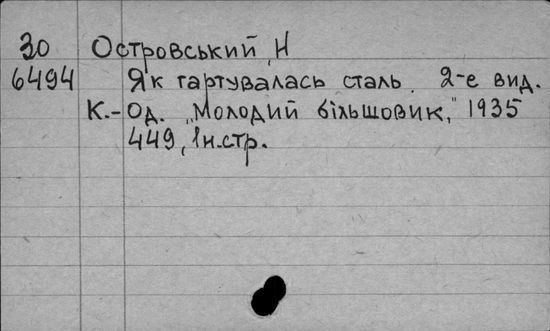 30 Островський, Н
6494 Як гартувалась сталь. 2-е вид.
К.-Од. „Молодий більшовик," 1935
449, 1н.стр.